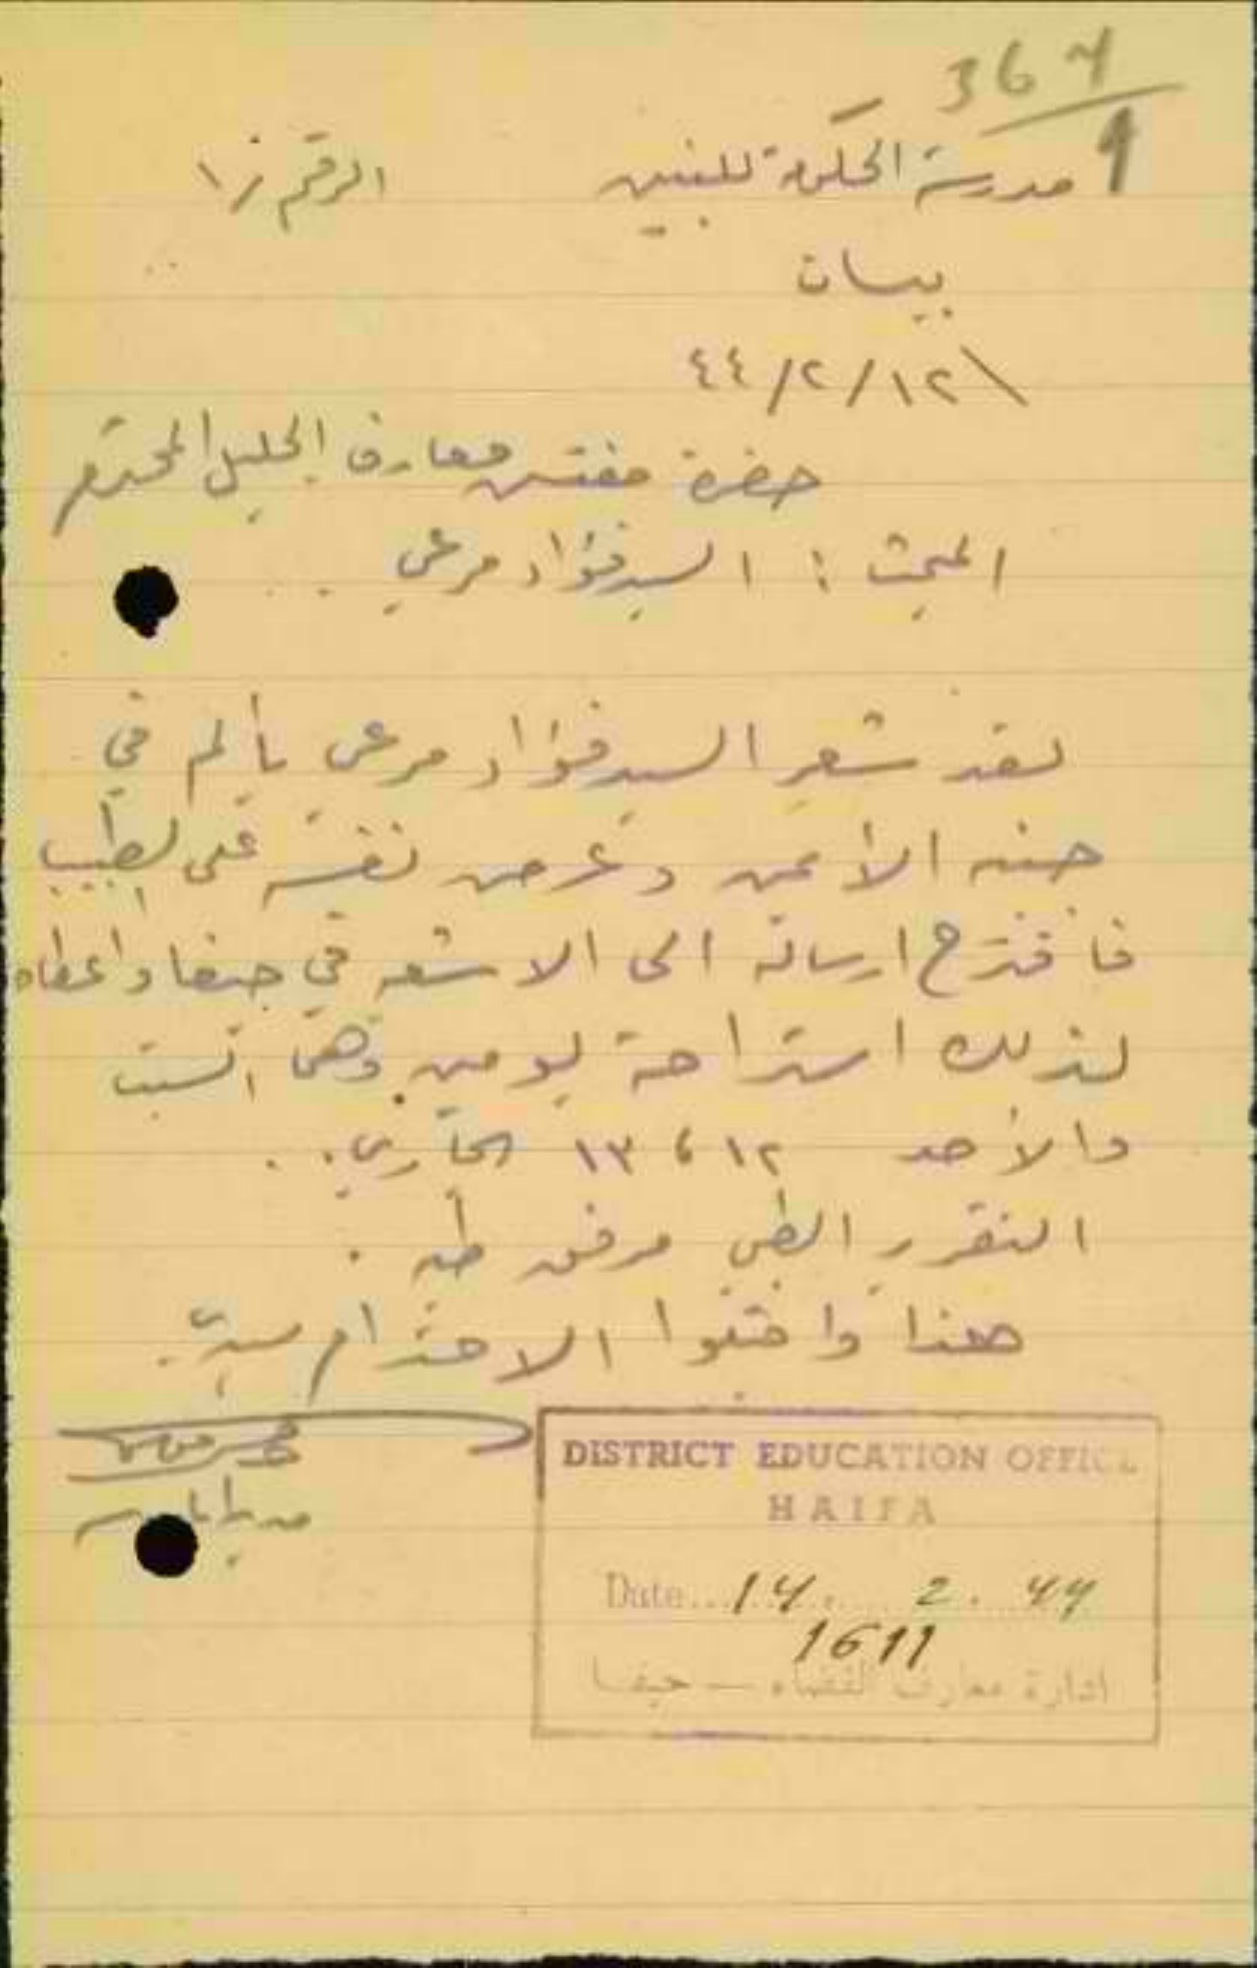 364
1
مدرسة الحكومة للبنين الرقم ز/١
بيسان
٤٤/٢/١٢
حضرة مفتش معارف الجليل المحترم
المبحث : السيد فؤاد مرعي
لقد شعر السيد فؤاد مرعي بألم في
جنبه الأيمن وعرض نفسه على الطبيب
فاقترح ارساله الى الاشعة في حيفا واعطاه
لذلك استراحة يومين وهما السبت
والأحد ١٢ ، ١٣ الجاري .
التقرير الطبي مرفق طيه .
هذا واقبلوا الاحترام سيدي
مدير المدرسة
DISTRICT EDUCATION OFFICE
HAIFA
Date... 14. 2. 44
1611
ادارة معارف القضاء — حيفا